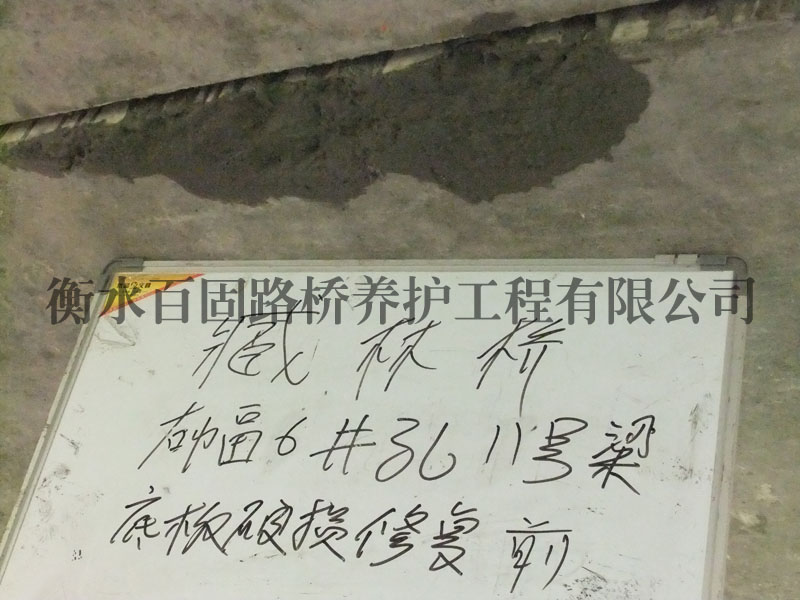 衡水百固路桥养护工程有限公司
臧林桥
右幅6井孔11号梁
底板破损修复前